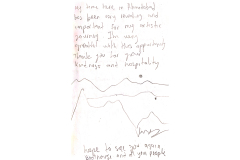 my time here in
has been very inspiring and
important for my artistic
journey. I'm very
grateful with this opportunity
thank you for your
kindness and hospitality
hope to see you again
and all you people